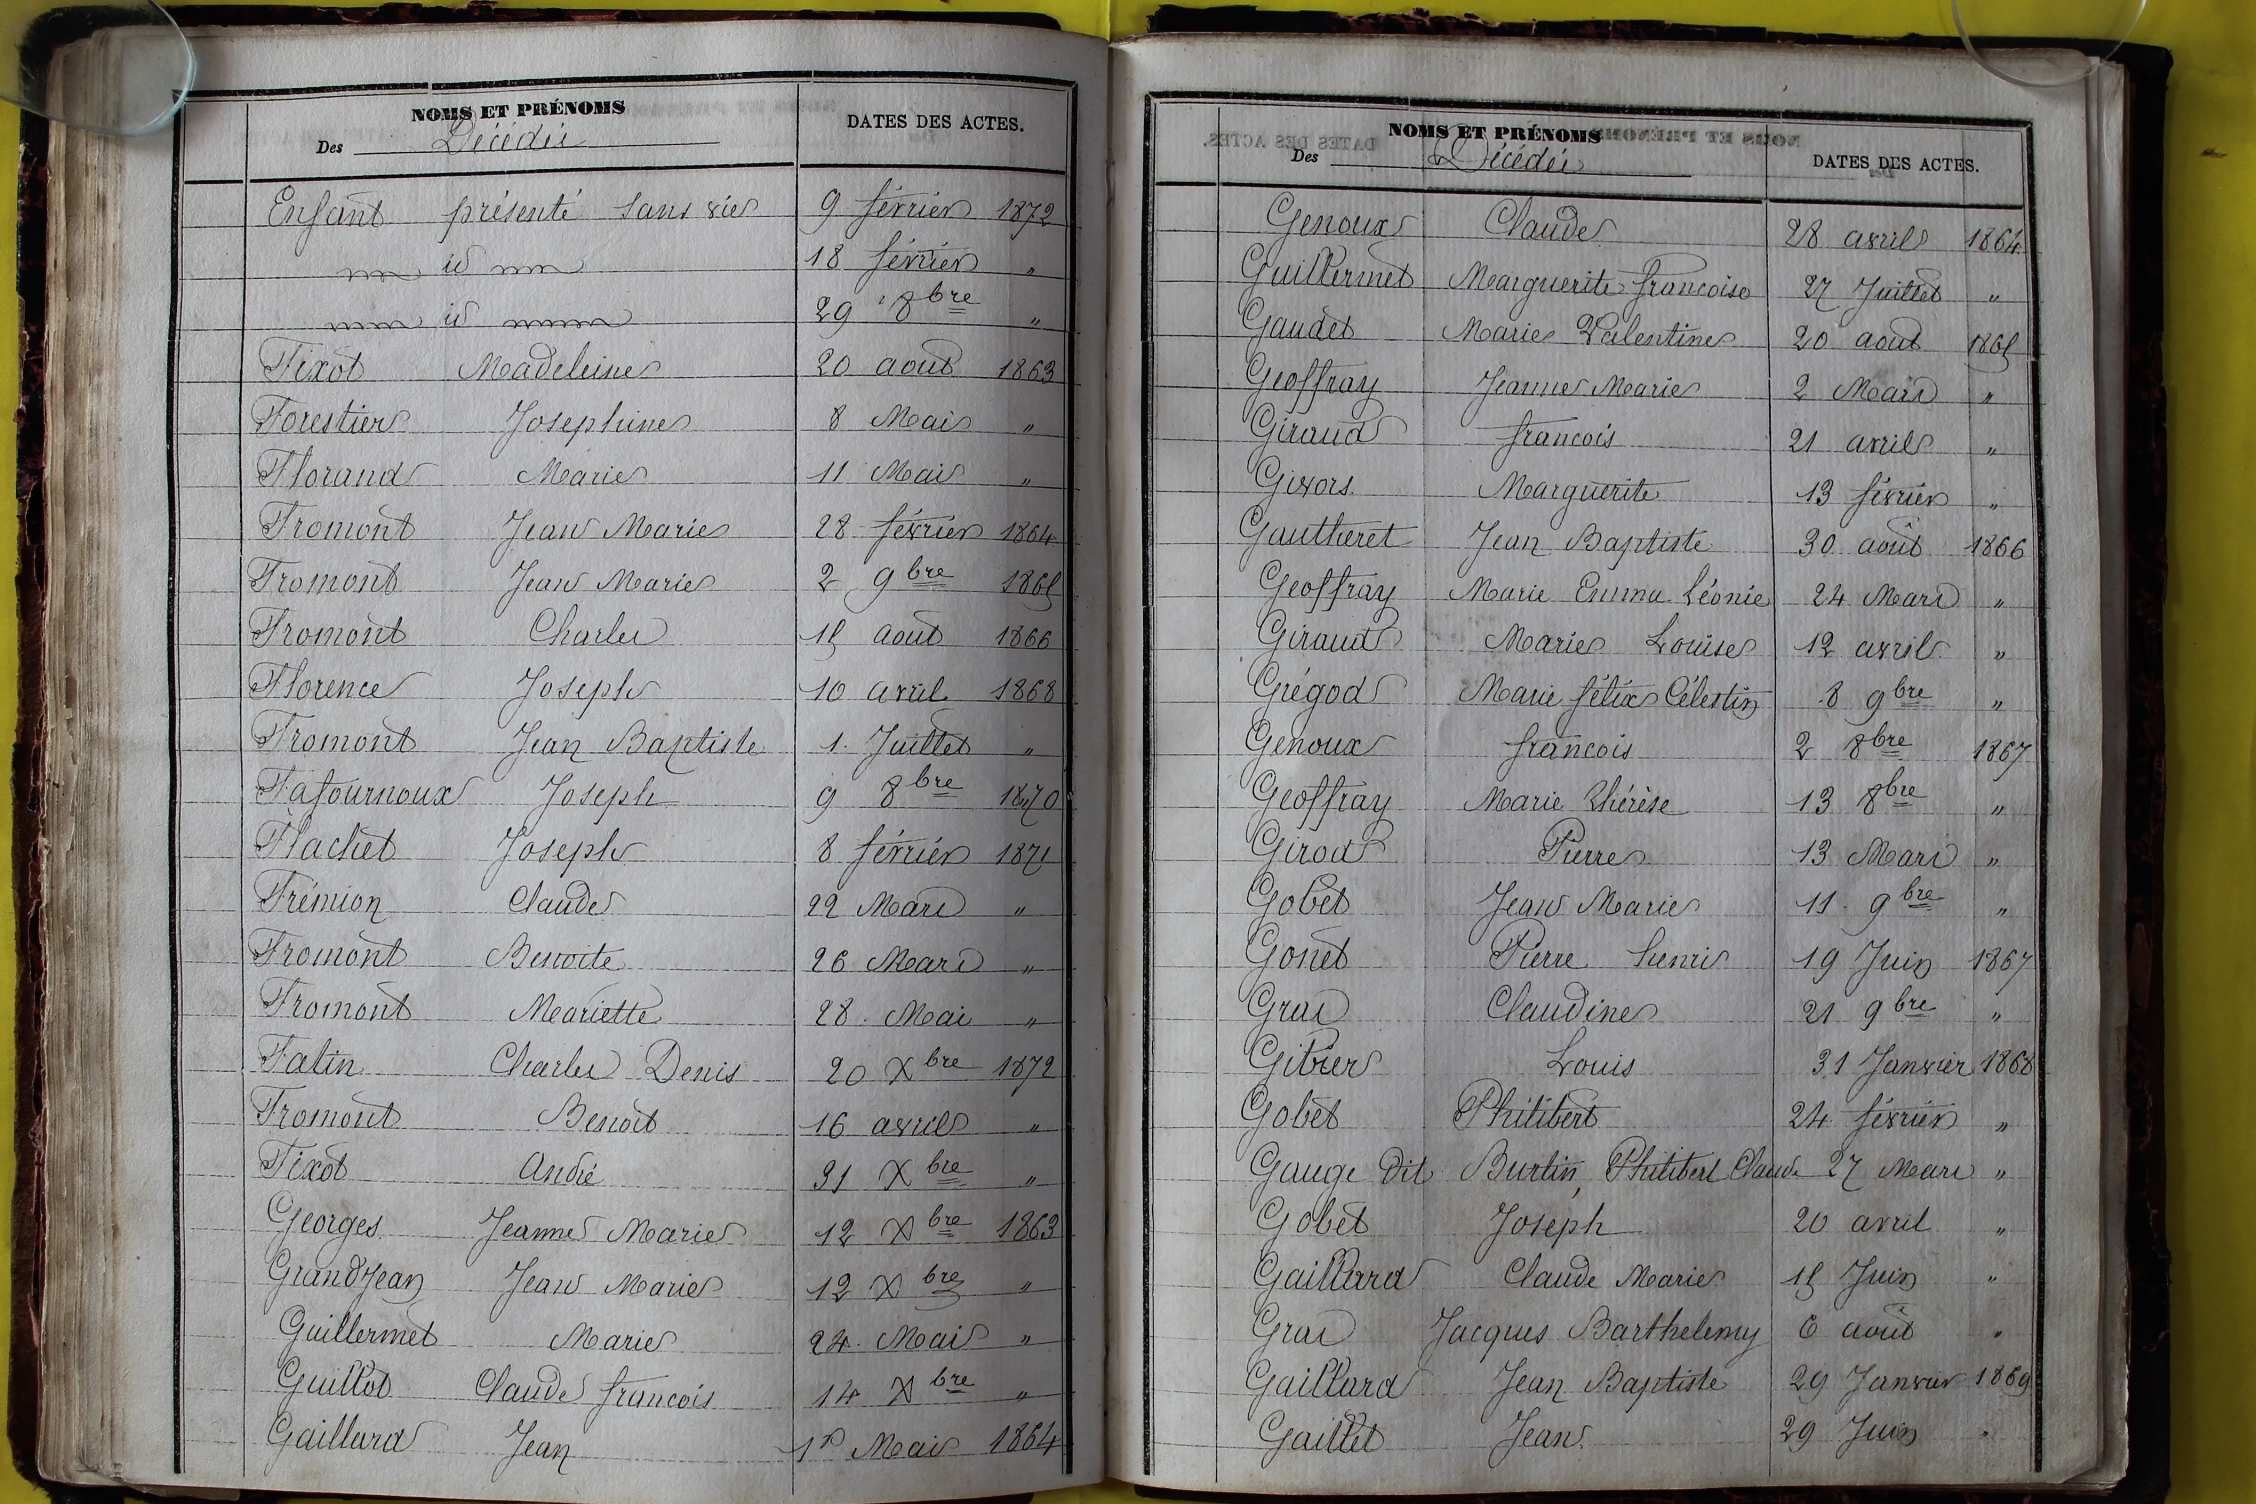 NOMS ET PRÉNOMS
Des Décédés
DATES DES ACTES.
Enfant présenté sans vie 9 février 1872
id 18 février "
id 29 8bre "
Fixot Madeleine 20 aout 1863
Forestier Josephine 8 Mai "
Florand Marie 11 Mai "
Fromont Jean Marie 28 février 1864
Fromont Jean Marie 2 9bre 1865
Fromont Charles 15 aout 1866
Florence Joseph 10 avril 1868
Fromont Jean Baptiste 1. Juillet "
Fafournoux Joseph 9 8bre 1870
Flachet Joseph 8 février 1871
Frémion Claude 22 Mars "
Fromont Benoite 26 Mars "
Fromont Mariette 28 Mai "
Fatin Charles Denis 20 Xbre 1872
Fromont Benoit 16 avril "
Fixot André 31 Xbre "
Georges Jeanne Marie 12 Xbre 1863
GrandJean Jean Marie 12 Xbre "
Guillermet Marie 24 Mai "
Guillot Claude francois 14 Xbre "
Gaillard Jean 1r Mai 1864
NOMS ET PRÉNOMS
Des Décédés
DATES DES ACTES.
Genoux Claude 28 avril 1864
Guillermet Marguerite francoise 27 Juillet "
Gaudet Marie Valentine 20 aout 1865
Geoffray Jeanne Marie 2 Mars "
Giraud francois 21 avril "
Givors. Marguerite 13 février "
Gautheret Jean Baptiste 30 août 1866
Geoffray Marie Emma Léonie 24 Mars "
Giraud Marie Louise 12 avril "
Grégod Marie félix Célestin 8 9bre "
Genoux francois 2 8bre 1867
Geoffray Marie Thérèse 13 8bre "
Girod Pierre 13 Mars "
Gobet Jean Marie 11 9bre "
Gonet Pierre henri 19 Juin 1867
Gras Claudine 21 9bre "
Gibier Louis 31 Janvier 1868
Gobet Philibert 24 février "
Gauge dit Burtin, Philibert Claude 27 Mars "
Gobet Joseph 20 avril "
Gaillard Claude Marie 15 Juin "
Gras Jacques Barthelemy 6 août "
Gaillard Jean Baptiste 29 Janvier 1869
Gaillet Jean 29 Juin "